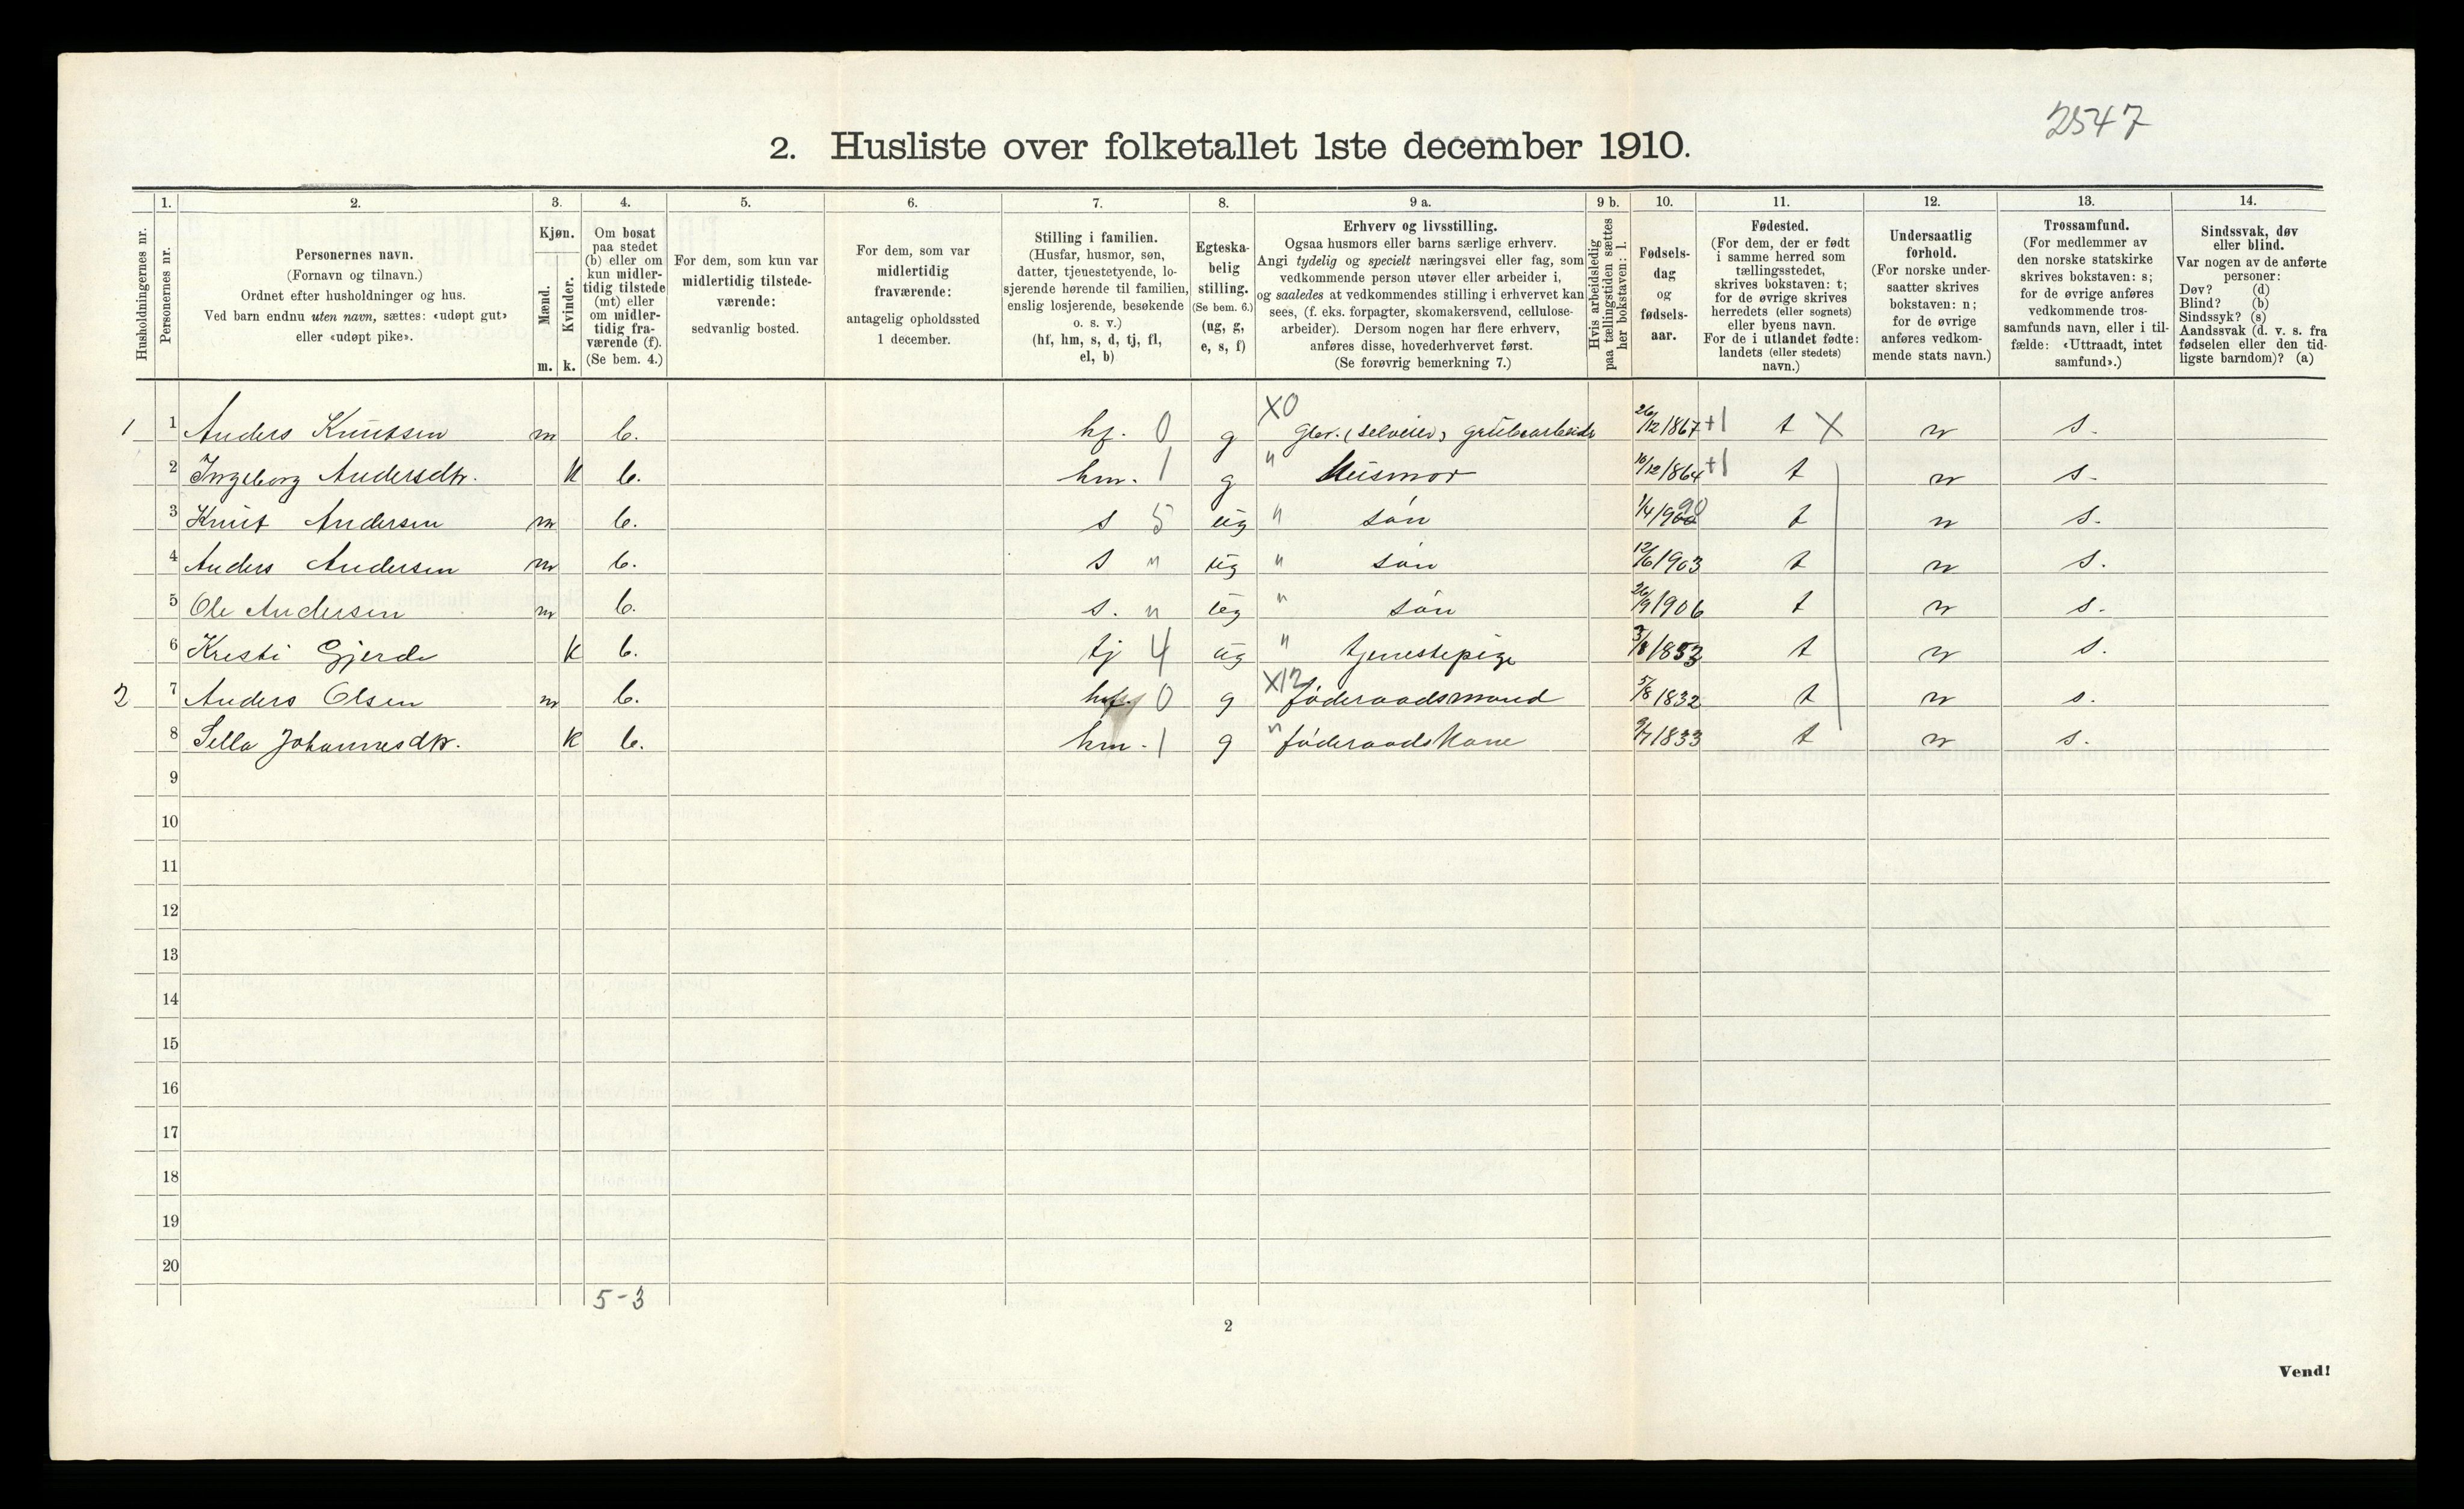 2547
2. Husliste over folketallet 1ste december 1910.
Husholdningernes nr.
1.
Personernes nr.
2.
Personernes navn.
(Fornavn og tilnavn.)
Ordnet efter husholdninger og hus.
Ved barn endnu uten navn, sættes: «udøpt gut»
eller «udøpt pike».
3.
Kjøn.
Mænd.
Kvinder.
m. k.
4.
Om bosat
paa stedet
(b) eller om
kun midler-
tidig tilstede
(mt) eller
om midler-
tidig fra-
værende (f).
(Se bem. 4.)
5.
For dem, som kun var
midlertidig tilstede-
værende:
sedvanlig bosted.
6.
For dem, som var
midlertidig
fraværende:
antagelig opholdssted
1 december.
7.
Stilling i familien.
(Husfar, husmor, søn,
datter, tjenestetyende, lo-
sjerende hørende til familien,
enslig losjerende, besøkende
o. s. v.)
(hf, hm, s, d, tj, fl,
el, b)
8.
Egteska-
belig
stilling.
(Se bem. 6.)
(ug, g,
e, s, f)
9 a.
Erhverv og livsstilling.
Ogsaa husmors eller barns særlige erhverv.
Angi tydelig og specielt næringsvei eller fag, som
vedkommende person utøver eller arbeider i,
og saaledes at vedkommendes stilling i erhvervet kan
sees, (f. eks. forpagter, skomakersvend, cellulose-
arbeider). Dersom nogen har flere erhverv,
anføres disse, hovederhvervet først.
(Se forøvrig bemerkning 7.)
9 b.
Hvis arbeidsledig
paa tællingstiden sættes
her bokstaven: l.
10.
Fødsels-
dag
og
fødsels-
aar.
11.
Fødested.
(For dem, der er født
i samme herred som
tællingsstedet,
skrives bokstaven: t;
for de øvrige skrives
herredets (eller sognets)
eller byens navn.
For de i utlandet fødte:
landets (eller stedets)
navn.)
12.
Undersaatlig
forhold.
(For norske under-
saatter skrives
bokstaven: n;
for de øvrige
anføres vedkom-
mende stats navn.)
13.
Trossamfund.
(For medlemmer av
den norske statskirke
skrives bokstaven: s;
for de øvrige anføres
vedkommende tros-
samfunds navn, eller i til-
fælde: «Uttraadt, intet
samfund».)
14.
Sindssvak, døv
eller blind.
Var nogen av de anførte
personer:
Døv? (d)
Blind? (b)
Sindssyk? (s)
Aandssvak (d. v. s. fra
fødselen eller den tid-
ligste barndom)? (a)
X0
1 1 Anders Knutsen m b. hf. 0 g gbr. (selveier) grubearbeider 26/12 1867 +1 t X n s.
2 Ingeborg Andersdtr. k b. hm. 1 g " Husmor 16/12 1864 +1 t n s.
3 Knut Andersen m b. s 5 ug " søn 1/4 1900 t n s.
4 Anders Andersen m b. s " ug " søn 12/6 1903 t n s.
5 Ole Andersen m b. s. " ug " søn 26/9 1906 t n s.
6 Kristi Gjerde k b. tj 4 ug " tjenestepige 3/8 1853 t n s.
2 7 Anders Olsen m b. hf. 0 g X12 føderaadsmand 5/8 1832 t n s.
8 Sella Johannesdtr. k b. hm. 1 g " føderaadskone 9/7 1833 t n s.
9
10
11
12
13
14
15
16
17
18
19
20
5-3
2
Vend!